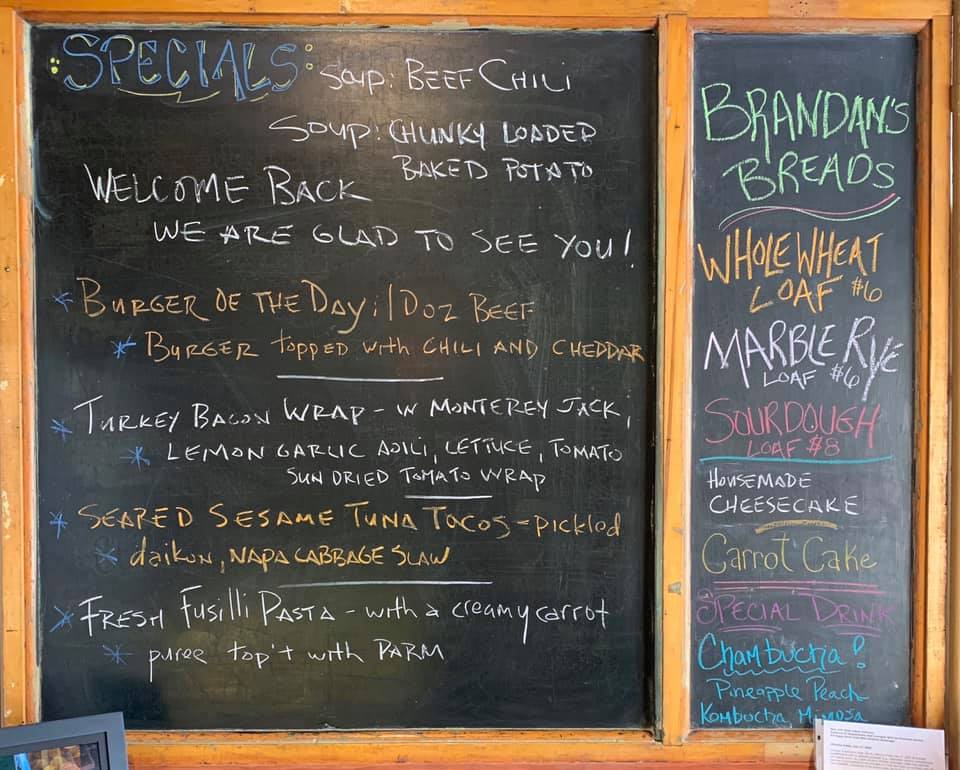 SPECIALS:
Soup: BEEF CHILI
Soup: CHUNKY LOADED
BAKED POTATO
WELCOME BACK
WE ARE GLAD TO SEE YOU!
* BURGER OF THE DAY: 1/2 OZ BEEF
* BURGER topped with CHILI AND CHEDDAR
* TURKEY BACON WRAP - W MONTEREY JACK,
* LEMON GARLIC AOILI, LETTUCE, TOMATO
SUN DRIED TOMATO WRAP
* SEARED SESAME TUNA TACOS - pickled
* daikon, NAPA CABBAGE SLAW
* FRESH Fusilli PASTA - with a creamy carrot
* puree top't with PARM
BRANDAN'S
BREADS
WHOLE WHEAT
LOAF #6
MARBLE RYE
LOAF #6
SOURDOUGH
LOAF #8
HOUSEMADE
CHEESECAKE
Carrot Cake
SPECIAL DRINK
Chambucha!
Pineapple Peach
Kombucha, Mimosa